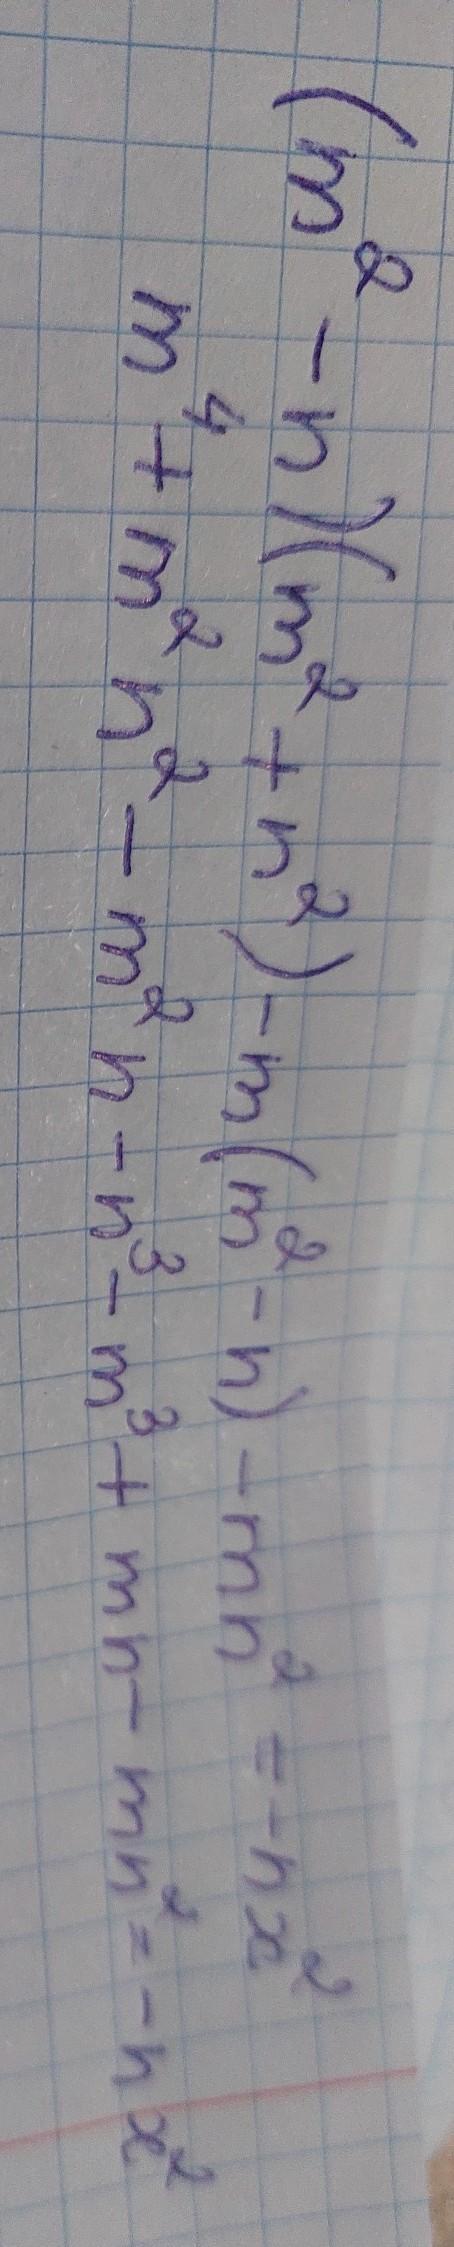 (m² - n)(m² + n²) - m(m² - n) - mn² = -nx²
m⁴ + m²n² - m²n - n³ - m³ + mn - mn² = -nx²